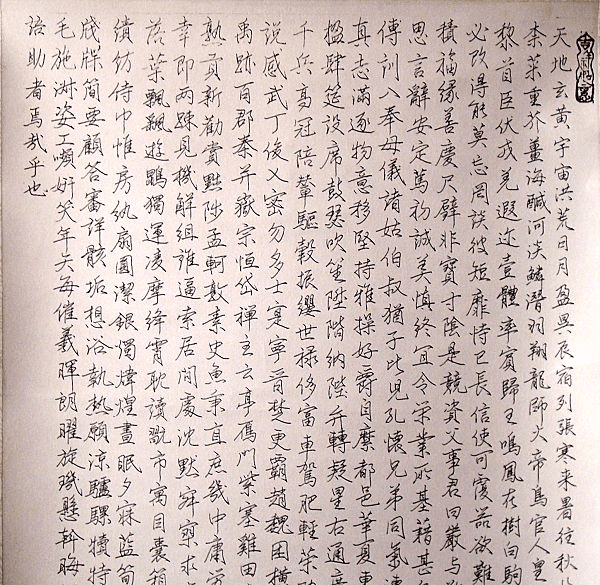 天地玄黃宇宙洪荒日月盈昃辰宿列張寒來暑往秋
柰菜重芥薑海鹹河淡鱗潛羽翔龍師火帝鳥官人皇
黎首臣伏戎羌遐迩壹體率賓歸王鳴鳳在樹白駒
必改得能莫忘罔談彼短靡恃己長信使可覆器欲難
積福緣善慶尺璧非寶寸陰是競資父事君曰嚴與
思言辭安定篤初誠美慎終宜令榮業所基藉甚
傅訓入奉母儀諸姑伯叔猶子比兒孔懷兄弟同氣連
真志滿逐物意移堅持雅操好爵自縻都邑華夏東
楹肆筵設席鼓瑟吹笙陞階納陛弁轉疑星右通廣
千兵高冠陪輦驅轂振纓世祿侈富車駕肥輕策
說感武丁俊乂密勿多士寔寧晉楚更霸趙魏困橫
禹跡百郡秦并嶽宗恒岱禪主云亭鴈門紫塞雞田
熟貢新勸賞黜陟孟軻敦素史魚秉直庶幾中庸勞
幸即两疎見機解組誰逼索居閒處沈默寂寥求
落葉飄颻遊鵾獨運凌摩絳霄耽讀翫市寓目囊箱
績紡侍巾帷房紈扇圓潔銀燭煒煌晝眠夕寐藍筍
牋牒簡要顧答審詳骸垢想浴執熱願涼驢騾犢特
毛施淑姿工嚬妍笑年矢每催羲暉朗曜旋璣懸斡晦
語助者焉哉乎也